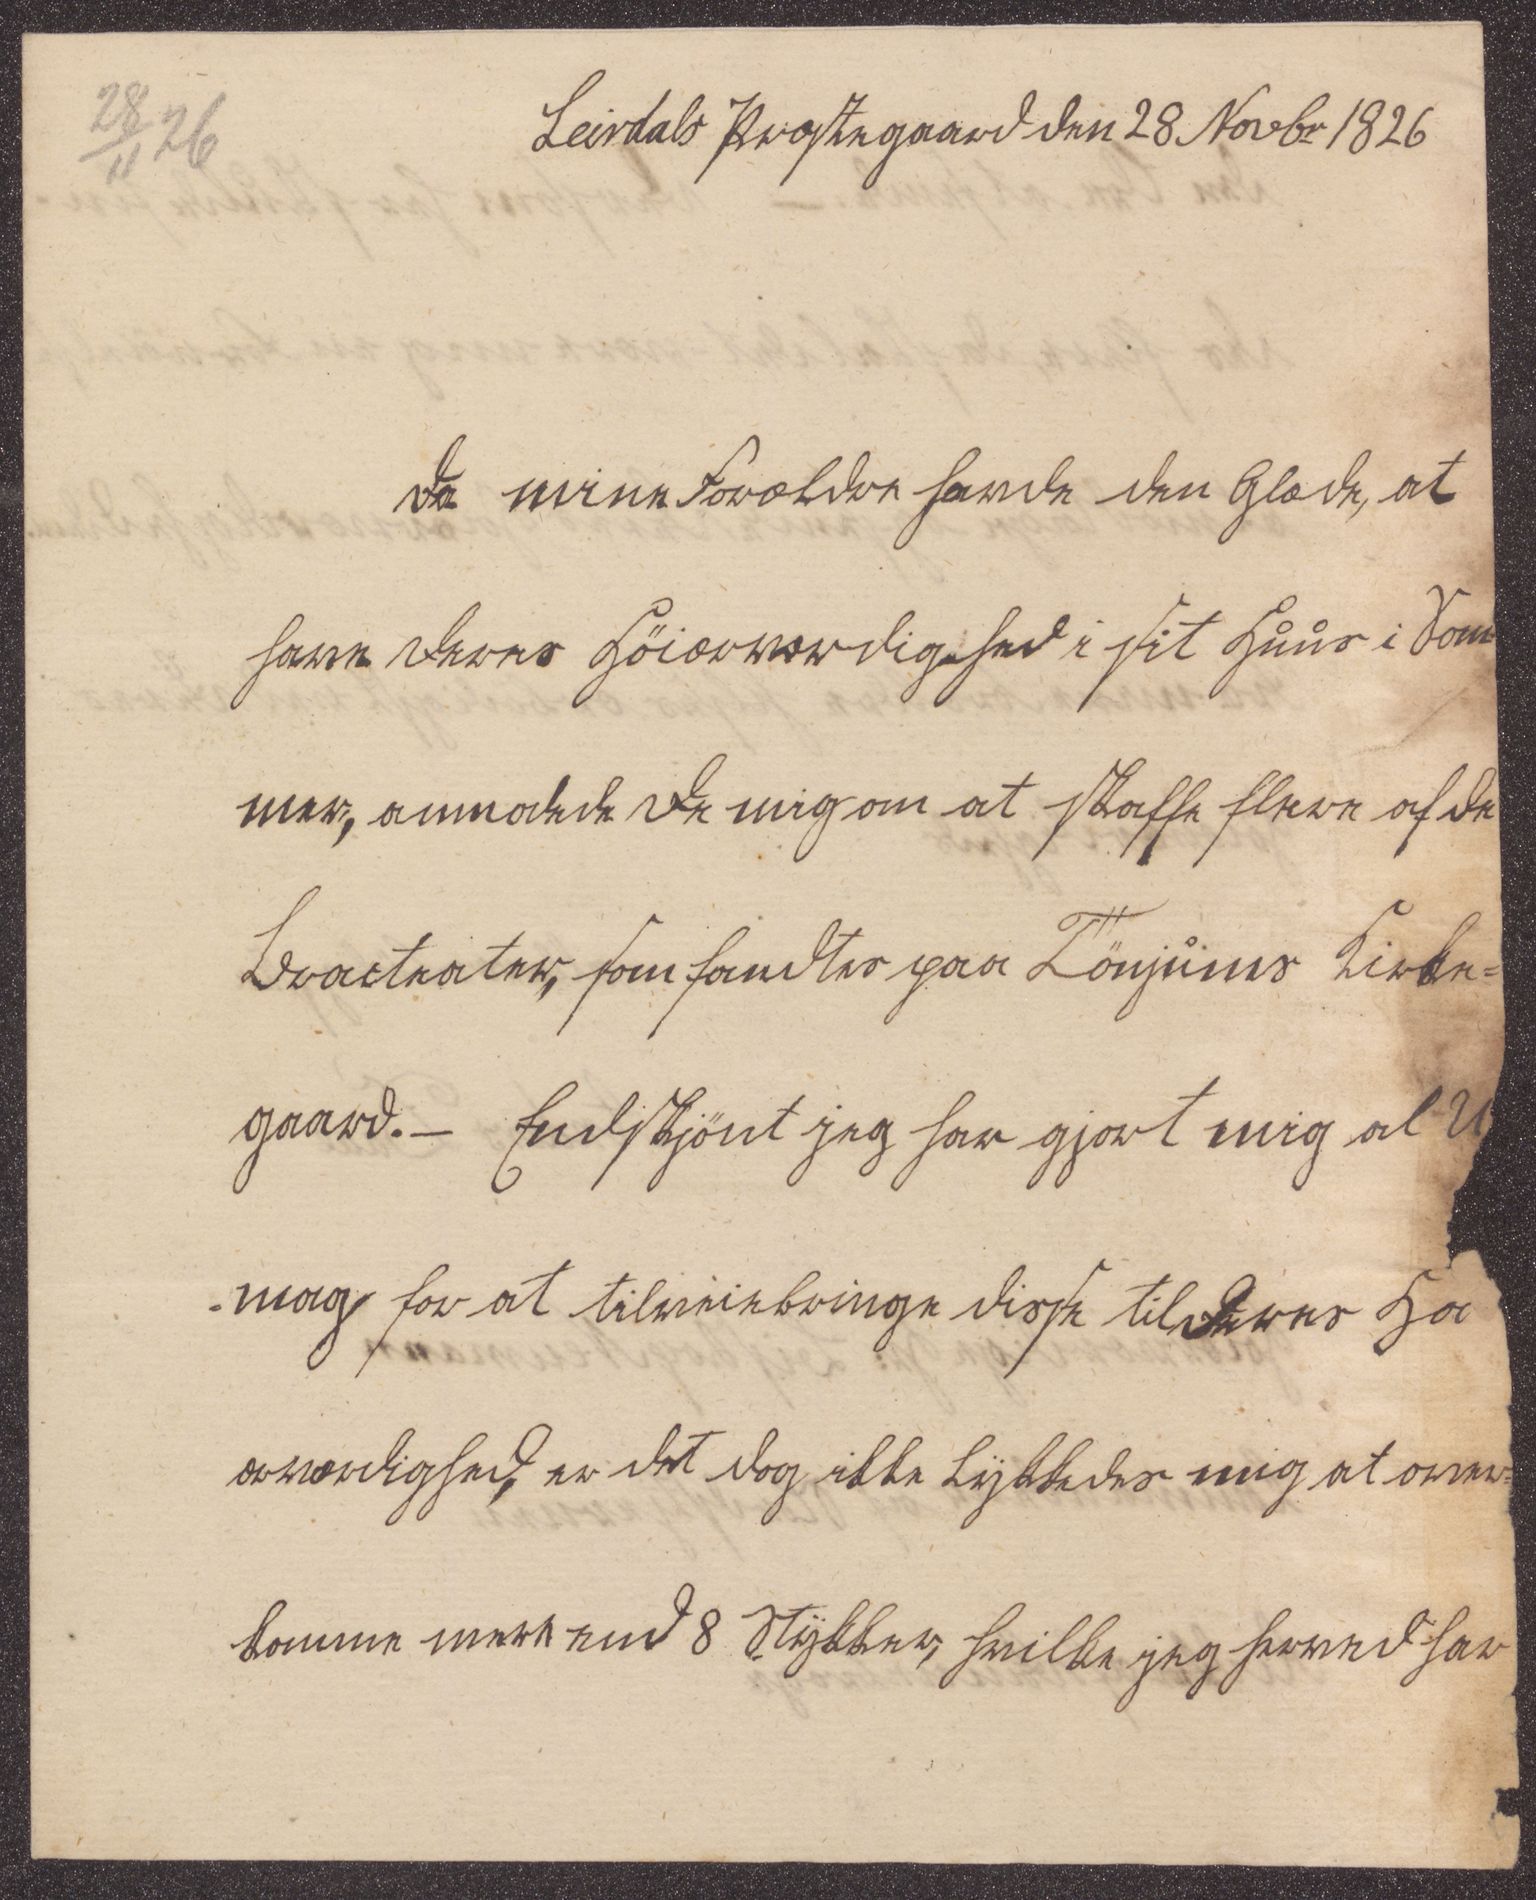 28/11 26
Leirdals Præstegaard den 28 Novbr 1826
Da mine Forældre havde den Glæde, at
have Deres Höiærværdighed i sit Huus i Som
mer, anmodede De mig om at skaffe flere af de
Bracteater, som fandtes paa Tönjums Kirke=
gaard. — Endskjönt jeg har gjort mig al U
-mag for at tilveiebringe disse til Deres Hö
ærværdighed, er det dog ikke lykkedes mig at over=
komme mere end 8 Stykker, hvilke jeg herved har